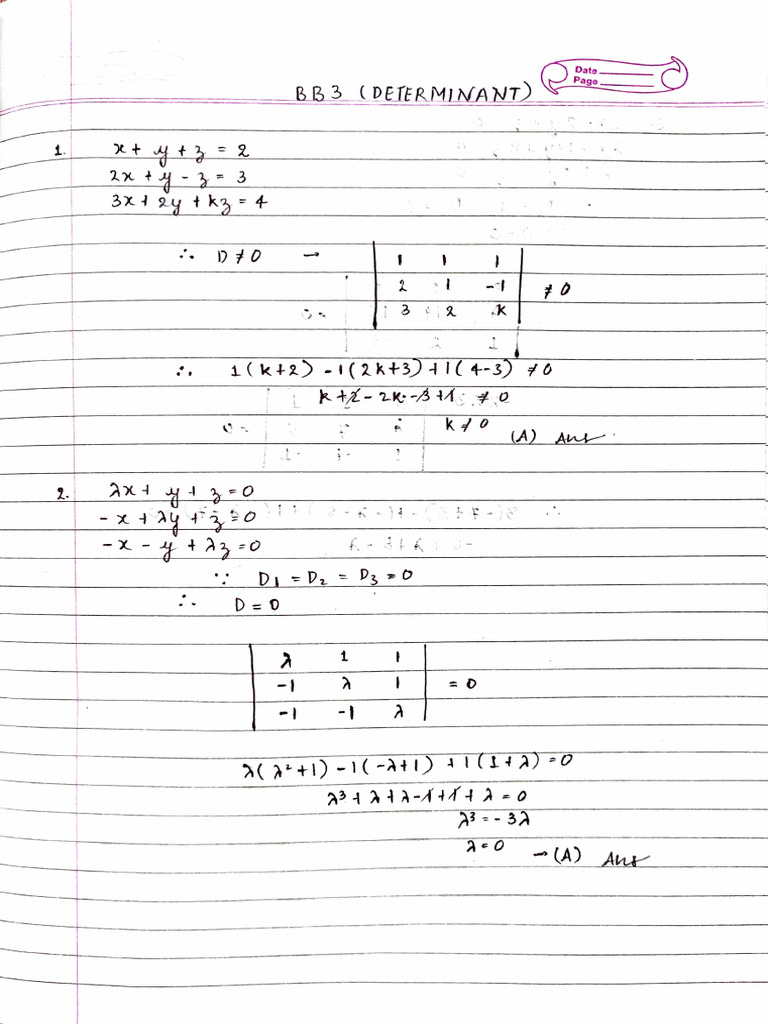 BB3 (DETERMINANT)
Date
Page
1. x + y + z = 2
2x + y - z = 3
3x + 2y + kz = 4
∴ D ≠ 0 → | 1 1 1 |
| 2 1 -1 | ≠ 0
| 3 2 k |
∴ 1(k+2) - 1(2k+3) + 1(4-3) ≠ 0
k + 2 - 2k - 3 + 1 ≠ 0
k ≠ 0 (A) Ans
2. λx + y + z = 0
-x + λy + z = 0
-x - y + λz = 0
∵ D1 = D2 = D3 = 0
∴ D = 0
| λ 1 1 |
| -1 λ 1 | = 0
| -1 -1 λ |
λ(λ²+1) - 1(-λ+1) + 1(1+λ) = 0
λ³ + λ + λ - 1 + 1 + λ = 0
λ³ = -3λ
λ = 0 → (A) Ans